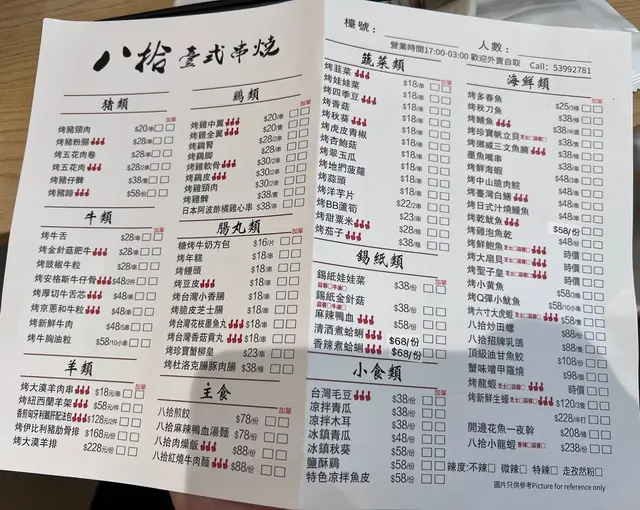 八拾 臺式串燒
豬類
加單
烤豬頸肉 $20/串
烤豬粉腸 $28/串
烤五花肉卷 $28/串
烤五花肉 $28/2串
烤豬仔髀 $38/串
烤豬蹄 $58/份
牛類
加單
烤牛舌 $28/串
烤金針菇肥牛 $28/串
烤豉椒牛粒 $28/串
烤安格斯牛仔骨 $48/2件
烤厚切牛舌芯 $48/串
烤京蔥和牛粒 $48/串
烤新鮮牛肉 $48/5串
烤牛胸油粒 $58/10小串
羊類
加單
烤大漠羊肉串 $18元/串
烤紐西蘭羊架 $58元/件
$128元/2件
烤伊比利豬肋骨排 $168元/份
烤大漠羊排 $228元/份
鷄類
加單
烤雞中翼 $20/串
烤雞全翼 $20/隻
烤鷄腎 $28/串
烤鷄腳 $28/串
烤雞軟骨 $30/2串
烤鷄皮 $30/2串
烤雞頸肉 $30/2串
烤雞髀 $38/隻
日本阿波酢橘雞心串 $38/串
腸丸類
加單
糖烤牛奶方包 $16/片
烤年糕 $18/串
烤饅頭 $18/串
烤豆皮 $18/串
烤台灣小香腸 $18/串
烤脆皮芝士腸 $18/串
烤台灣花枝墨魚丸 $18/串
烤台灣香菇貢丸 $18/串
烤珍寶蟹柳皇 $23/串
烤杜洛克腸豚肉腸 $38/條
主食
加單
八拾煎餃 $78/份
八拾麻辣鴨血湯麵 $78/份
八拾肉燥飯 $88/份
八拾紅燒牛肉麵 $88/份
檯號： 人數：
營業時間17:00-03:00 歡迎外賣自取 Call：53992781
蔬菜類
加單
烤韮菜 $18/串
烤娃娃菜 $18/串
烤四季豆 $18/串
烤香菇 $18/串
烤秋葵 $18/串
烤虎皮青椒 $18/串
烤杏鮑菇 $18/串
烤翠玉瓜 $18/串
烤地捫菠蘿 $18/串
烤蒜頭 $18/串
烤洋芋片 $18/串
烤BB蘆筍 $22/2串
烤甜粟米 $23/串
烤茄子 $28/條
錫紙類
加單
錫紙娃娃菜 $38/份
錫紙金針菇 $38/份
麻辣鴨血 $58/份
清酒煮蛤蜊 $68/份
香辣煮蛤蜊 $68/份
小食類
加單
台灣毛豆 $38/份
涼拌青瓜 $38/份
涼拌木耳 $38/份
冰鎮青瓜 $48/份
冰鎮秋葵 $58/份
鹽酥鷄 $58/份
特色涼拌魚皮 $58/份
海鮮類
加單
烤多春魚 $25/3條
烤秋刀魚 $38/條
烤鯖魚 $38/半邊
烤珍寶帆立貝 $38/隻
烤挪威三文魚腩 $38/串
墨魚嘴串 $38/串
烤鮮海蝦 $38/串
烤中山脆肉鯇 $48/3串
烤臺灣白鱔 $48/串
烤日式汁燒鰻魚 $48/串
烤乾魷魚 $58/份
烤雞泡魚乾 $48/份
烤鮮鮑魚 時價
烤大扇貝 時價
烤聖子皇 時價
烤小黃魚 $58/3條
烤Q彈小魷魚 $58/10小串
烤六寸大虎蝦 $58/隻
八拾炒田螺 $88/份
八拾招牌乳鴿 $88/隻
頂級油甘魚鮫 $108/份
蟹味噌甲羅燒 $98/份
烤龍蝦 時價
烤新鮮生蠔 $120/3隻
$228/半打
開邊花魚一夜幹 $208/條
八拾小龍蝦 $238/份
辣度：不辣 微辣 特辣 走孜然粉
圖片只供參考Picture for reference only